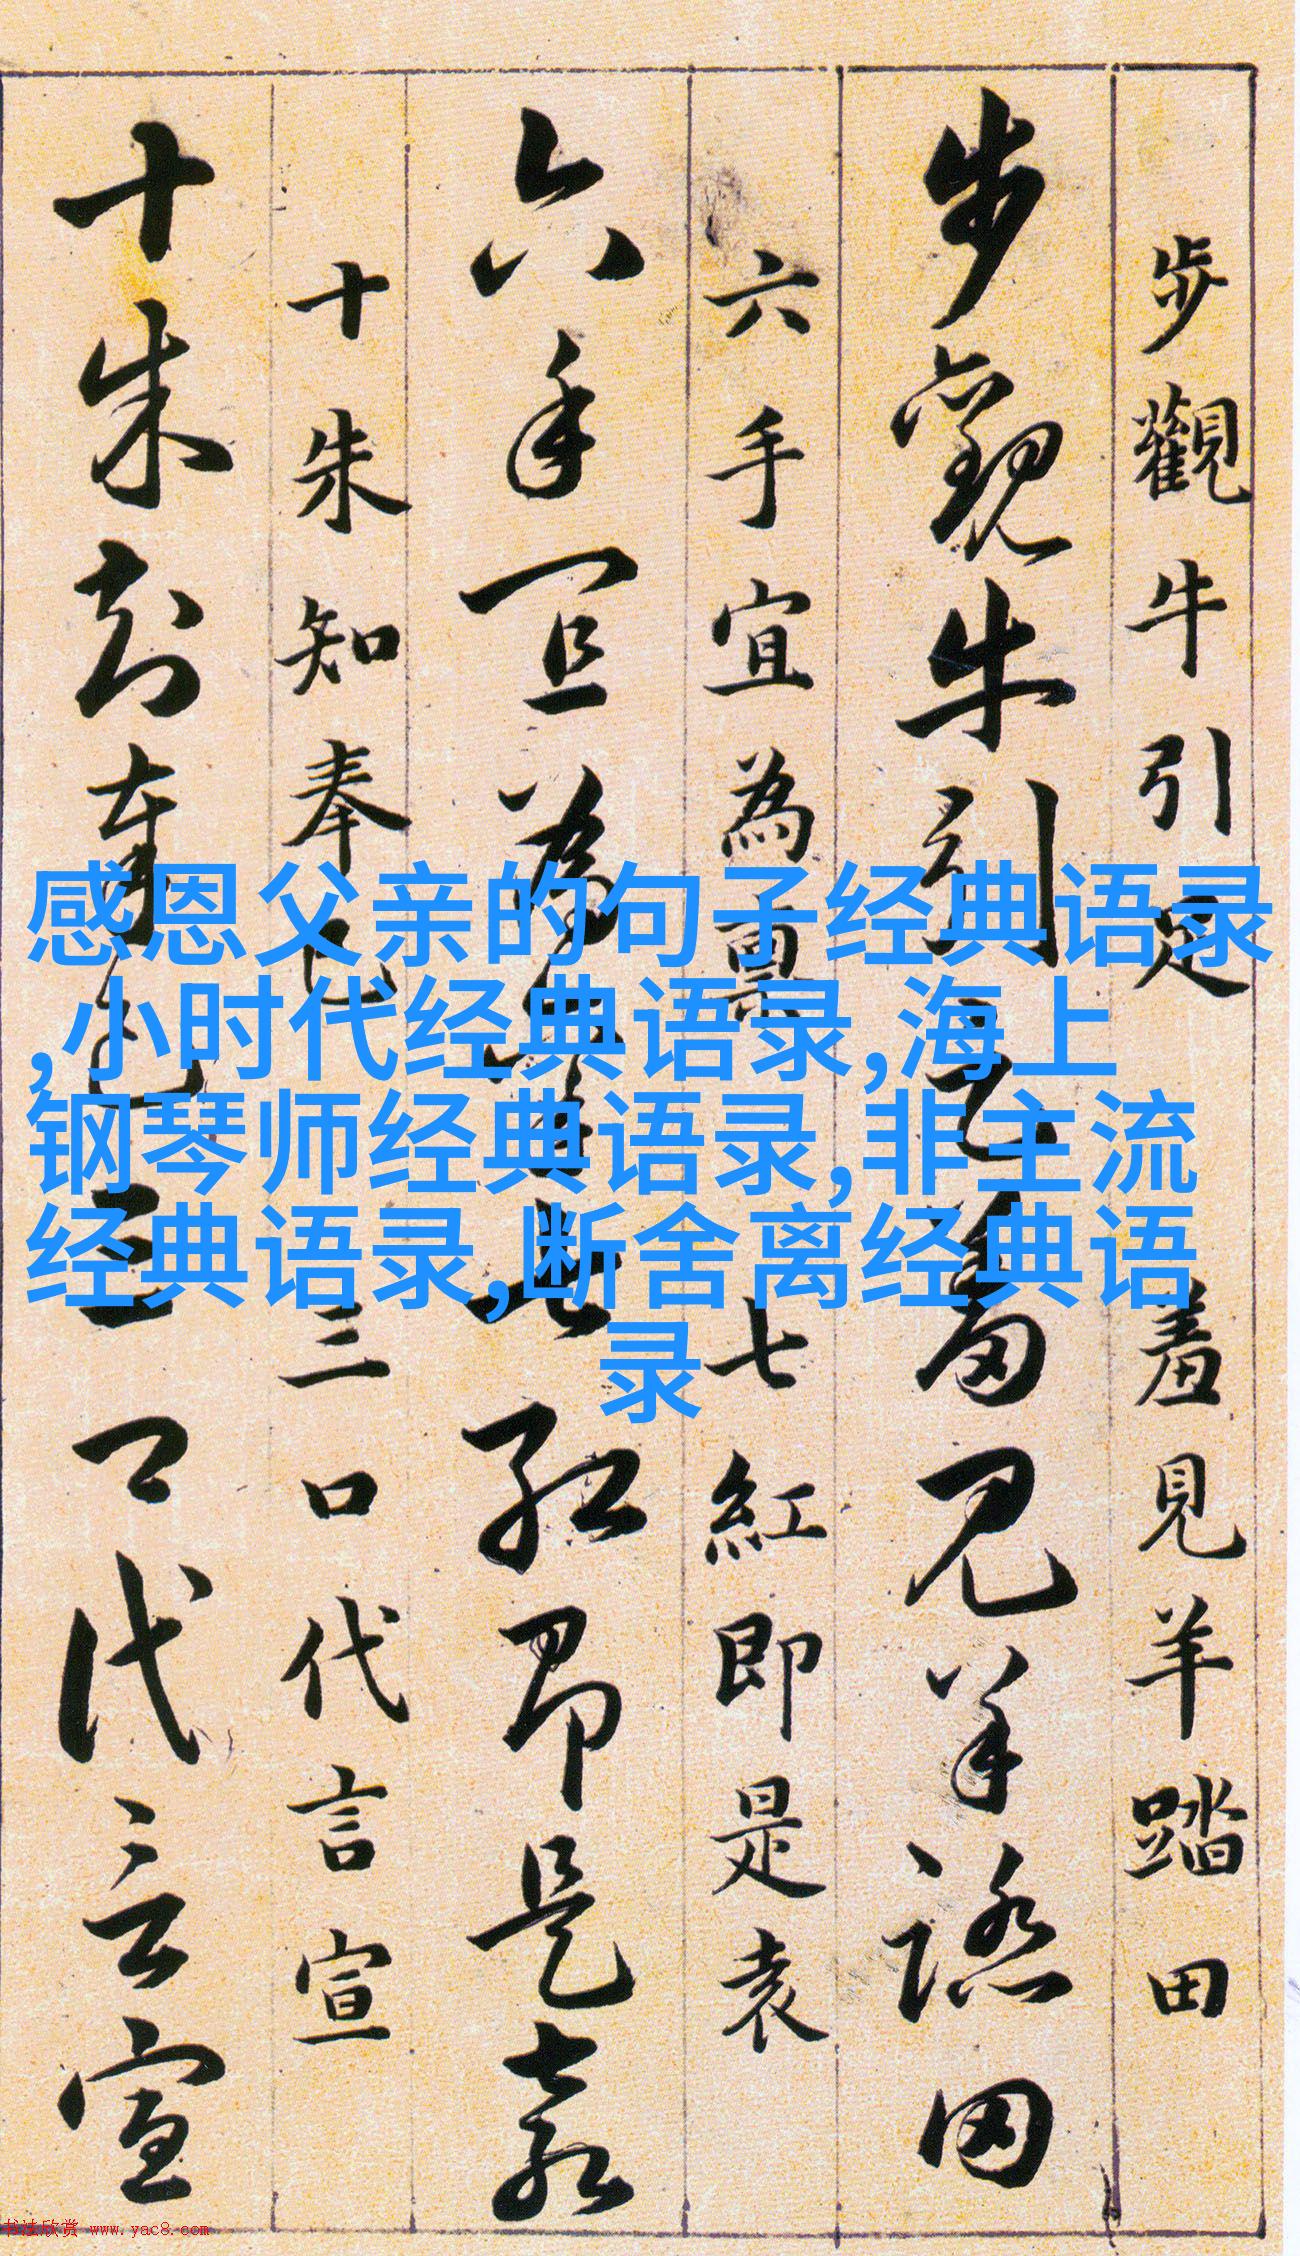 步觀牛引足 羞見羊踏田
步觀牛引足羞見羊踏田
六手宜為稟 七紅即是袁
六手宜為稟七紅即是袁
十朱知奉已 三口代言宣
十朱知奉已三口代言宣
感恩父亲的句子经典语录
,小时代经典语录,海上
钢琴师经典语录,非主流
经典语录,断舍离经典语
录
书法欣赏 www.yac8.com